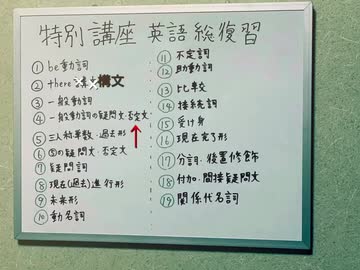 特別講座 英語総復習
① be動詞
② there 構文
③ 一般動詞
④ 一般動詞の疑問文・否定文
⑤ 三人称単数・過去形
⑥ ⑤の疑問文・否定文
⑦ 疑問詞
⑧ 現在(過去)進行形
⑨ 未来形
⑩ 動名詞
⑪ 不定詞
⑫ 助動詞
⑬ 比較
⑭ 接続詞
⑮ 受け身
⑯ 現在完了形
⑰ 分詞・後置修飾
⑱ 付加・間接疑問文
⑲ 関係代名詞